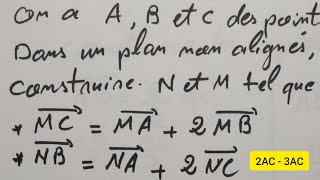 On a A, B et C des point
Dans un plan non alignés,
construire. N et M tel que
* MC = MA + 2 MB
* NB = NA + 2 NC
2AC - 3AC